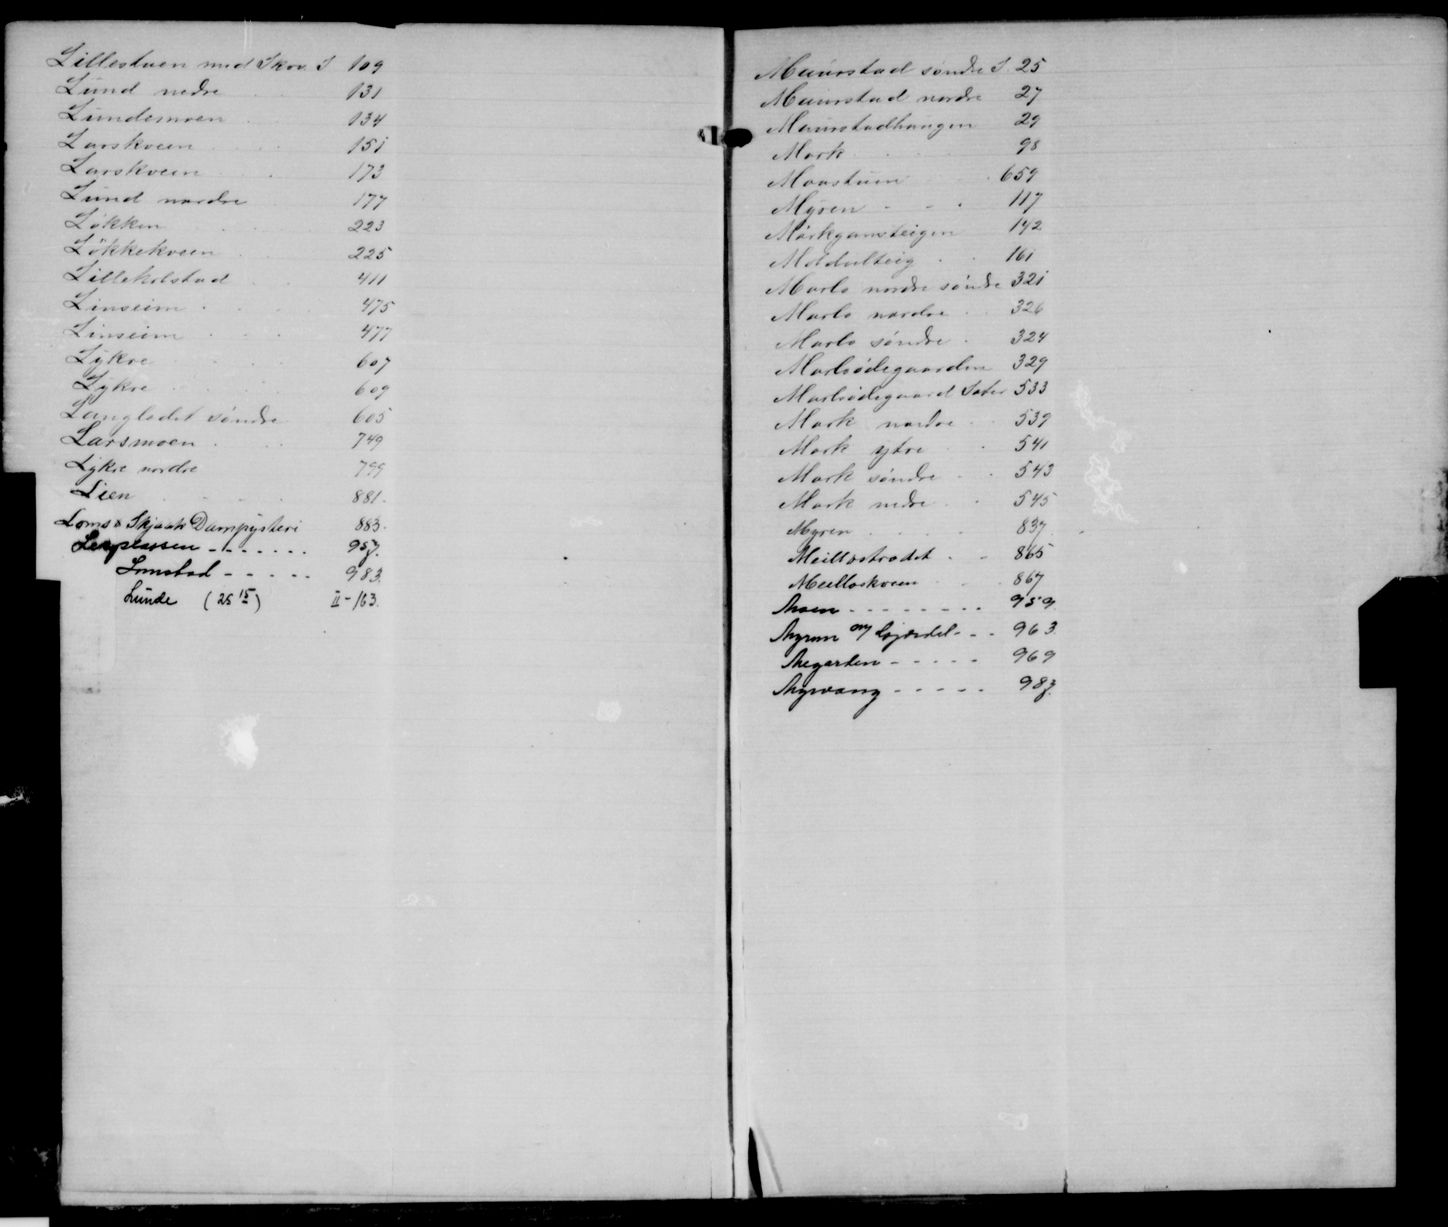 Lillestuen med Skov S 109
Lund nedre 131
Lundemoen 134
Larskveen 151
Larskveen 173
Lund nordre 177
Løkken 223
Løkkekveen 225
Lillekolstad 411
Linseim 475
Linseim 477
Lykre 607
Lykre 609
Langledet søndre 605
Larsmoen 749
Lykre nordre 799
Lien 881
Loms & Skjaak Dampysteri 883
957
Lomstad 983
Lunde (25 15) II-163
Maurstad søndre S. 25
Maurstad nordre 27
Maurstadhaugen 29
Mork 98
Moastuen 659
Myren 117
Morkgamsteigen 142
161
Marlo nordre søndre 321
Marlo nordre 326
Marlo søndre 324
Marloødegaarden 329
Marloødegaard Sæter 533
Mork nordre 539
Mork ytre 541
Mork søndre 543
Mork nedre 545
Myren 837
865
867
Moen 959
963
Megarden 969
Myrvang 983